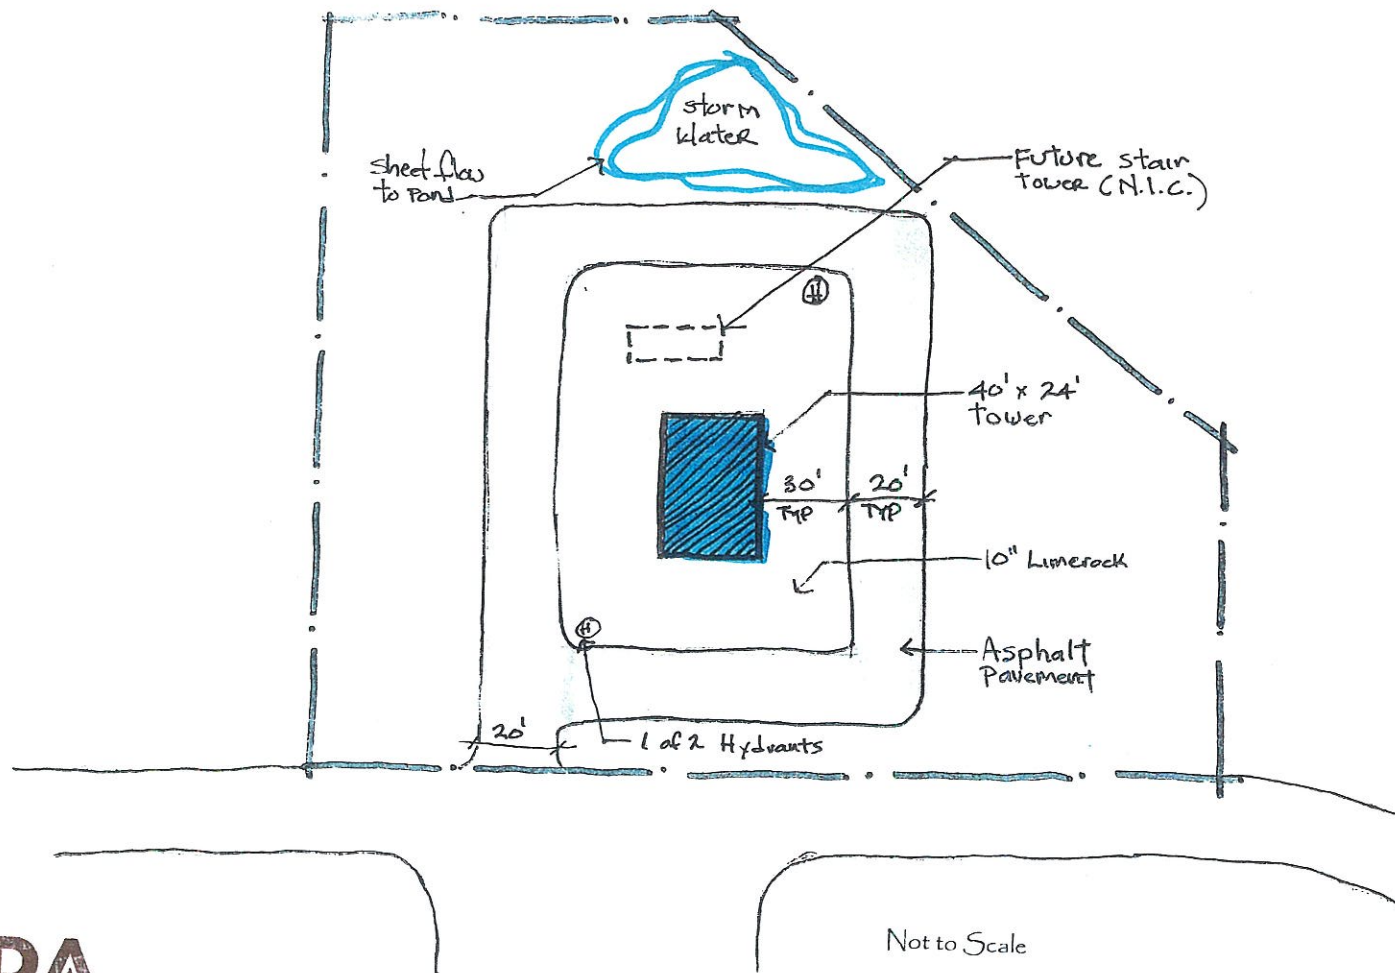 storm
Water
sheet flow
to Pond
Future stair
tower (N.I.C.)
H
40' x 24'
tower
30'
TYP
20'
TYP
10" Limerock
H
Asphalt
Pavement
20'
1 of 2 Hydrants
Not to Scale